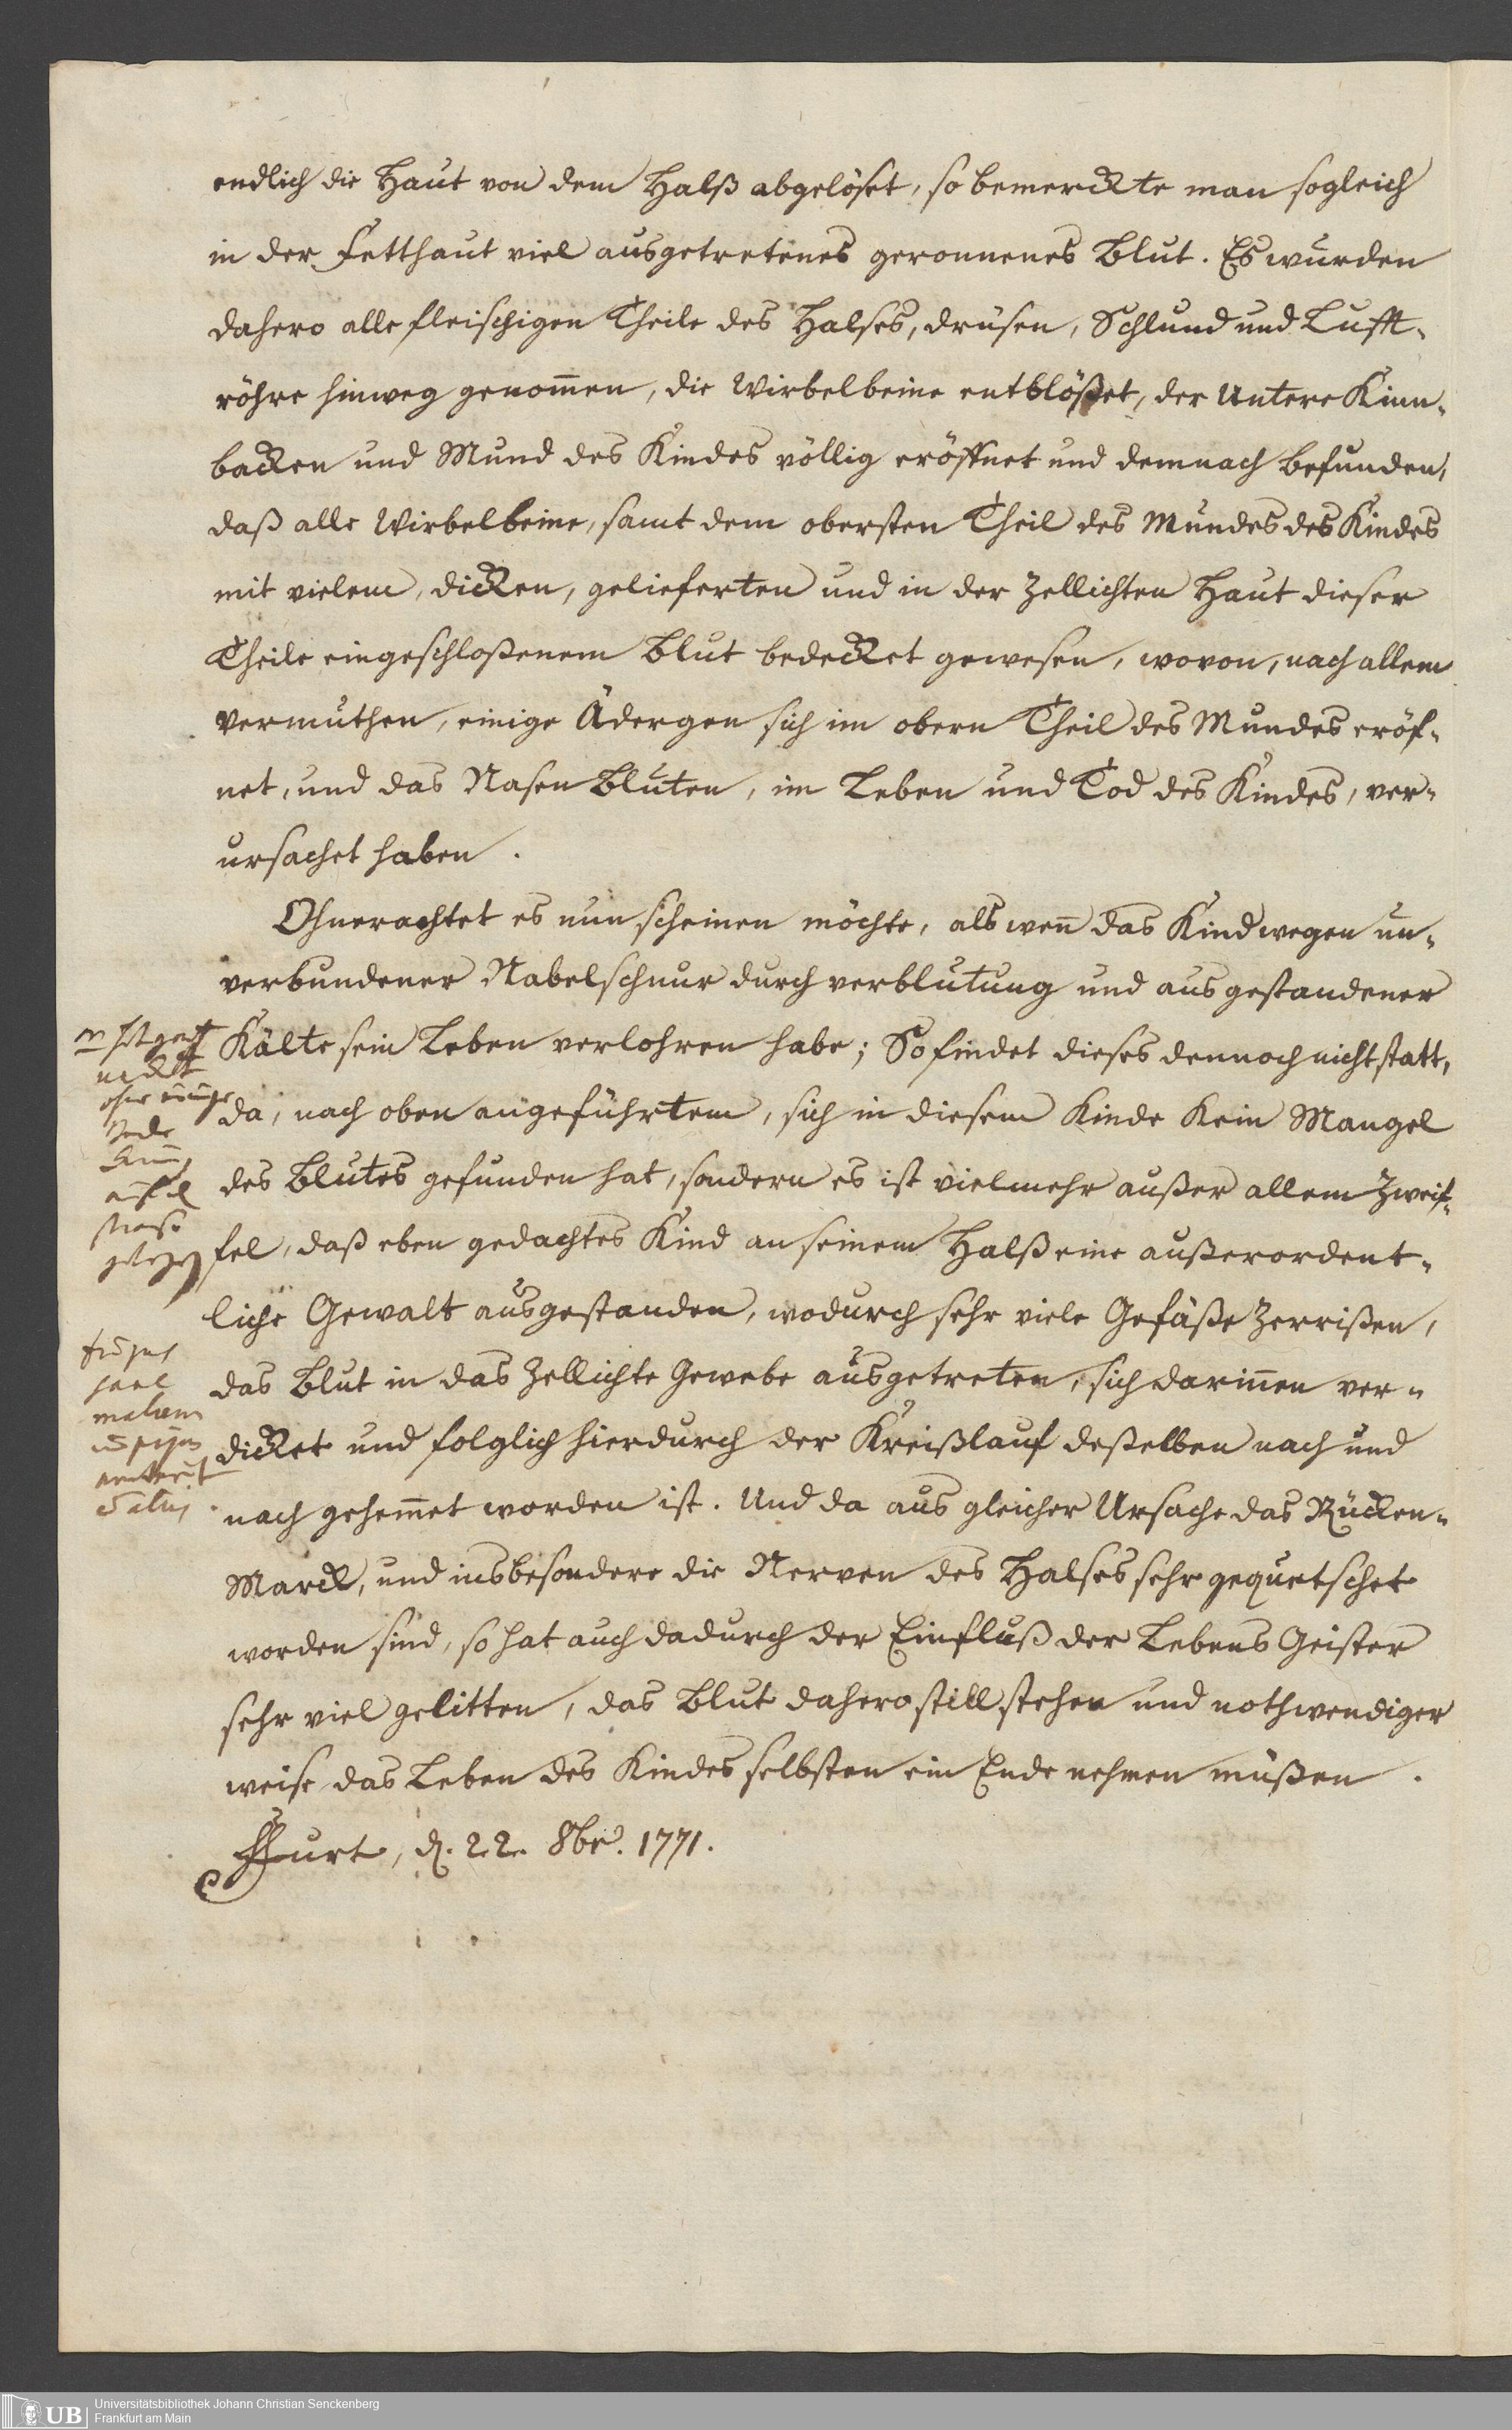 endlich die Haut von dem Halß abgelöset, so bemerckte man sogleich
in der Fetthaut viel ausgetretenes geronnenes Blut. Es wurden
dahero alle fleischigen Theile des Halses, drüsen, Schlund und Lufft-
röhre hinweg genom̄en, die Wirbelbeine entblößet, der Untere Kinn-
backen und Mund des Kindes völlig eröffnet und demnach befunden,
daß alle Wirbelbeine, samt dem obersten Theil des Mundes des Kindes
mit vielem, dicken, gelieferten und in der Zellichten Haut dieser
Theile eingeschloßenem Blut bedecket gewesen, wovon, nach allem
vermuthen, einige Ädergen sich im obern Theil des Mundes eröf-
net, und das Nasen Bluten, im Leben und Tod des Kindes, ver-
ursachet haben.
Ohnerachtet es nun scheinen möchte, als wen̄ das Kind wegen un-
verbundener Nabelschnur durch verblutung und ausgestandener
Kälte sein Leben verlohren habe; So findet dieses dennoch nicht statt,
da, nach oben angeführtem, sich in diesem Kinde Kein Mangel
des Blutes gefunden hat, sondern es ist vielmehr außer allem Zweif-
fel, daß eben gedachtes Kind an seinem Halß eine außerordent-
liche Gewalt ausgestanden, wodurch sehr viele Gefäße Zerrißen,
das Blut in das Zellichte Gewebe ausgetreten, sich darin̄en ver-
dicket und folglich hierdurch der Kreißlauf deßelben nach und
nach gehem̄et worden ist. Und da aus gleicher Ursache das Rücken-
Marck, und insbesondere die Nerven des Halses sehr gequetschet
worden sind, so hat auch dadurch der Einfluß der Lebens Geister
sehr viel gelitten, das Blut dahero still stehen und nothwendiger
weise das Leben des Kindes selbsten ein Ende nehmen müßen.
Ffurt, d. 22. 8br. 1771.
Universitätsbibliothek Johann Christian Senckenberg
Frankfurt am Main
UB